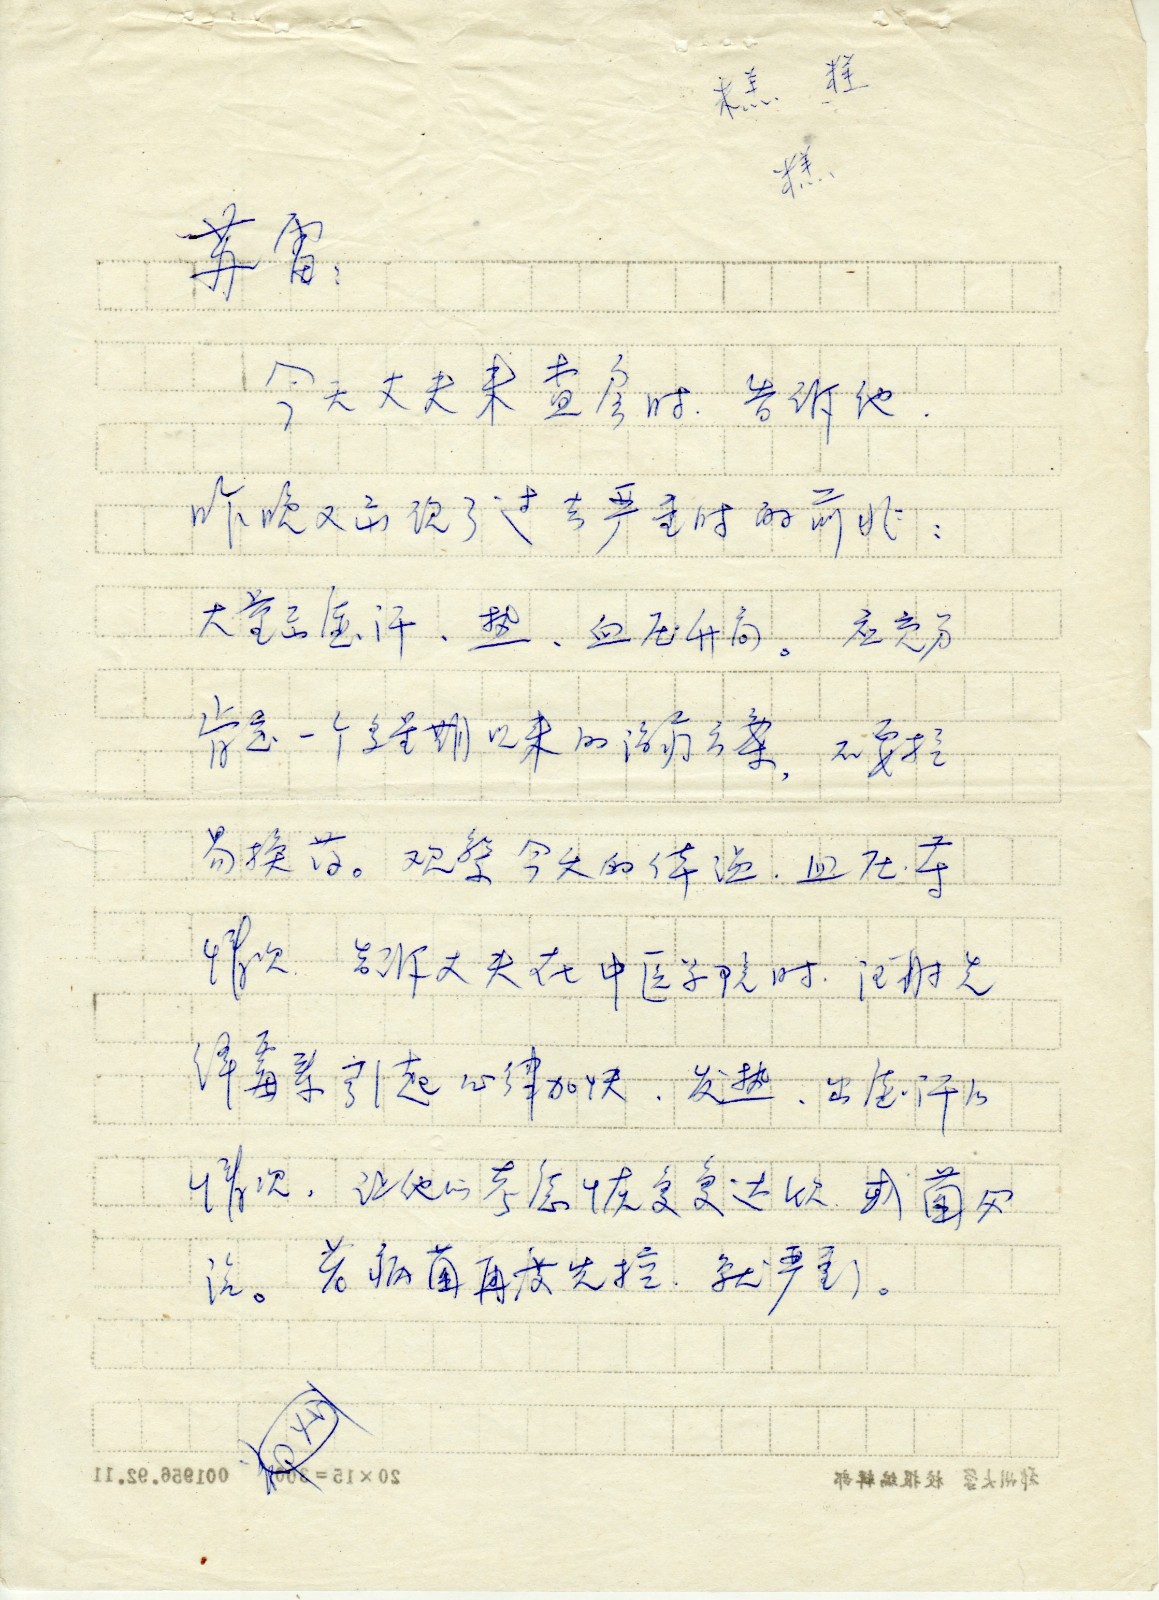 糕 糕
糕
苏雷：
今天大夫来查房时. 告诉他.
昨晚又出现了过去严重时的前兆：
大量出虚汗、热、血压升高。应充分
肯定一个多星期以来的治疗方案，不要轻
易换药。观察今天的体温. 血压等
情况. 告诉大夫在中医学院时. 注射先
锋霉素引起心律加快、发热、出虚汗的
情况，让他们考虑恢复复达欣
治。若病菌再度失控. 就严重了。
20×15=300 001956.92.11
郑州大学 校报编辑部